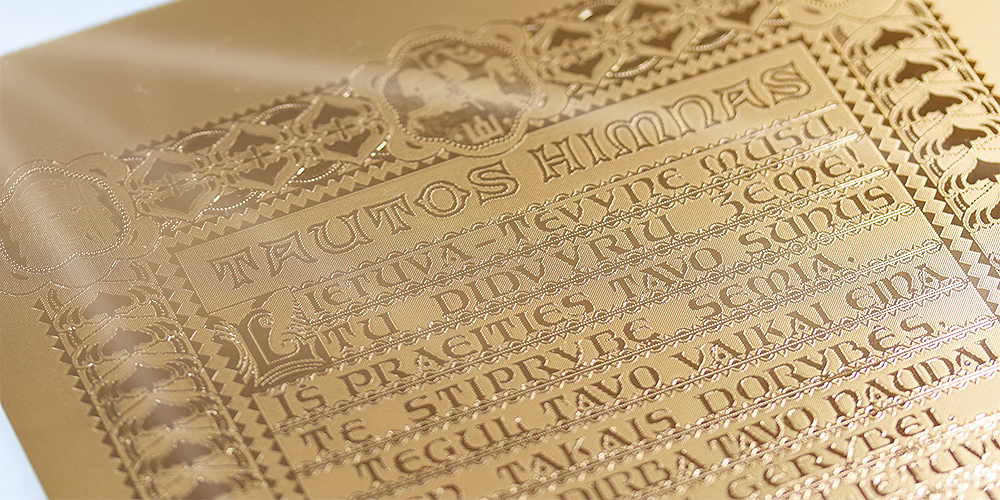 TAUTOS HIMNAS
LIETUVA-TEVYNE MUSU
TU DIDVYRIU ZEME!
IS PRAEITIES TAVO SUNUS
TE STIPRYBE SEMIA.
TEGUL TAVO VAIKAI EINA
TAKAIS DORYBES,
DIRBA TAVO NAUDAI
GERYBEI.